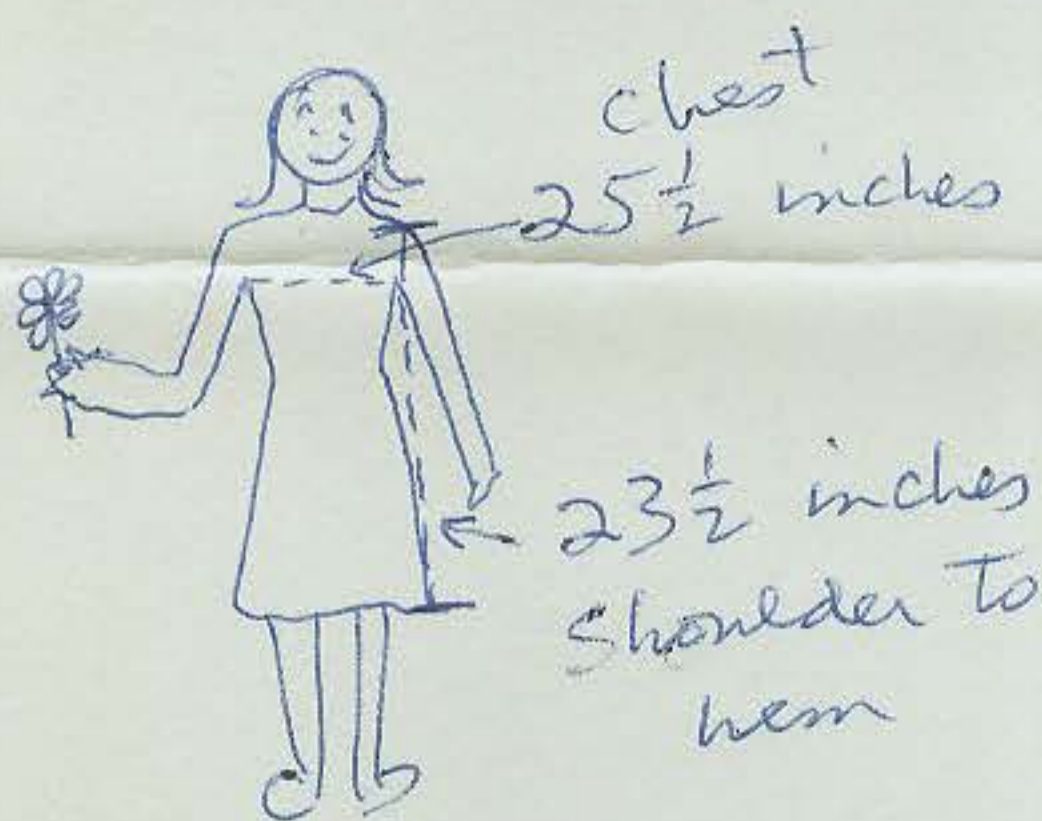 chest
25 1/2 inches
23 1/2 inches
Shoulder to
hem